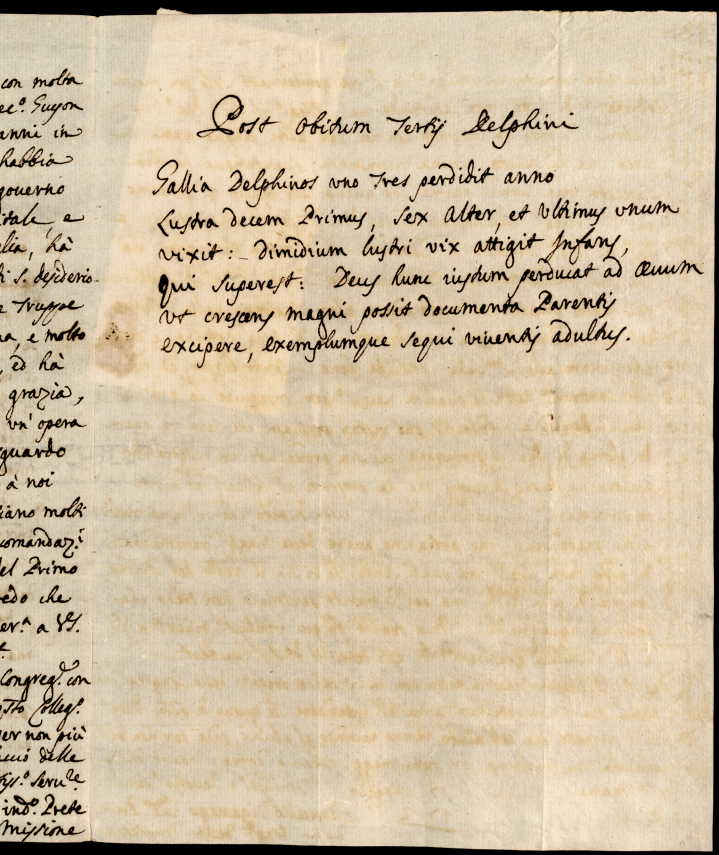 con molta
ec.º Guyon
anni in
habbia
gouerno
itale, e
lia, hà
i S. desiderio
e Truppe
na, e molto
, ed hà
grazia,
vn' opera
guardo
à noi
iano molti
comandaz.i
del Primo
edo che
er.ª a VS.
Congreg.e con
sto Colleg.º
er non più
nció delle
iss.º Seru.re
ind.º Prete
Missione
Post obitum Tertij Delphini
Gallia Delphinos vno Tres perdidit anno
Lustra decem Primus, Sex Alter, et Vltimus vnum
vixit: Dimidium lustri vix attigit Infans,
qui superest: Deus hunc iustum perducat ad æuum
vt crescens magni possit documenta Parentis
excipere, exemplumque sequi viuentis adultus.